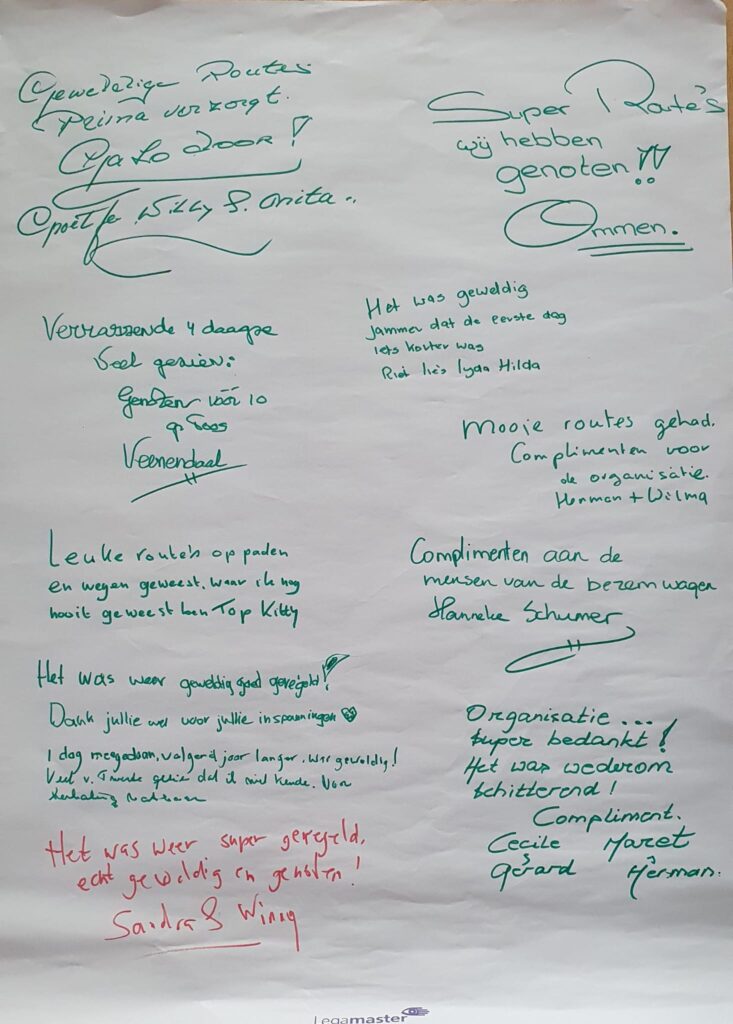 Geweldige Routes
Prima verzorgt.
Ga zo door!
Willy & Anita..
Super Route's
wij hebben
genoten!!
Ommen.
Verrassende 4 daagse
Veel gezien:
Genoten vóór 10
Veenendaal
Het was geweldig
jammer dat de eerste dag
iets korter was
Riet lies lyda Hilda
Mooie routes gehad.
Complimenten voor
de organisatie.
Herman + Wilma
Leuke route's op paden
en wegen geweest. waar ik nog
nooit geweest ben Top Kitty
Complimenten aan de
mensen van de bezemwagen
Hanneke Schurmer
Het was weer geweldig goed geregeld!
Dank jullie wel voor jullie inspanningen
1 dag meegedaan, volgend jaar langer. Was geweldig!
Veel v. Twente gezien dat ik niet kende.
Organisatie...
super bedankt!
Het was wederom
schitterend!
Compliment.
Cecile Maret
Gérard Herman.
Het was weer super geregeld,
echt geweldig en genoten!
Sandra & Winny
Legamaster